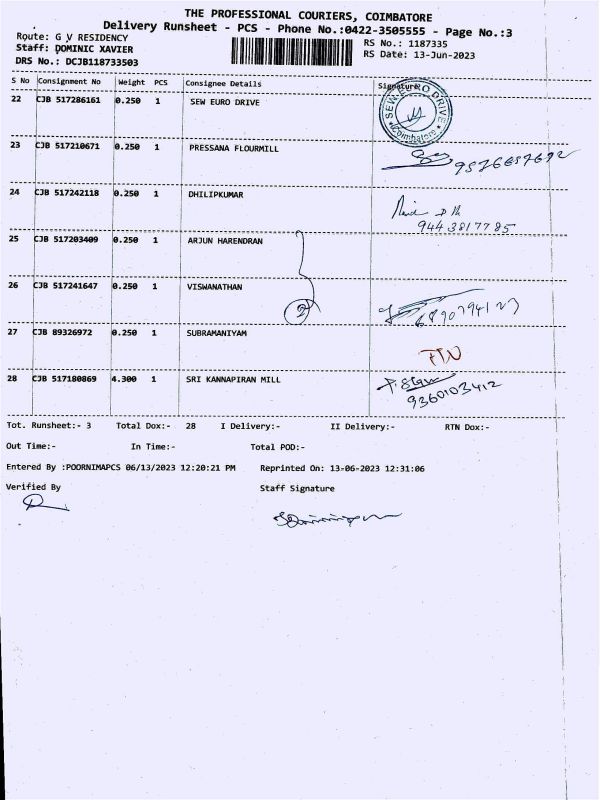 THE PROFESSIONAL COURIERS, COIMBATORE
Delivery Runsheet - PCS - Phone No.:0422-3505555 - Page No.:3
Route: G V RESIDENCY
RS No.: 1187335
Staff: DOMINIC XAVIER
RS Date: 13-Jun-2023
DRS No.: DCJB118733503
S No Consignment No Weight PCS Consignee Details Signature
22 CJB 517286161 0.250 1 SEW EURO DRIVE
SEW EURO DRIVE
Coimbatore
23 CJB 517210671 0.250 1 PRESSANA FLOURMILL
24 CJB 517242118 0.250 1 DHILIPKUMAR
9443817785
25 CJB 517203409 0.250 1 ARJUN HARENDRAN
26 CJB 517241647 0.250 1 VISWANATHAN
2
27 CJB 89326972 0.250 1 SUBRAMANIYAM
28 CJB 517180869 4.300 1 SRI KANNAPIRAN MILL
9360103412
Tot. Runsheet:- 3 Total Dox:- 28 I Delivery:- II Delivery:- RTN Dox:-
Out Time:- In Time:- Total POD:-
Entered By :POORNIMAPCS 06/13/2023 12:20:21 PM Reprinted On: 13-06-2023 12:31:06
Verified By Staff Signature